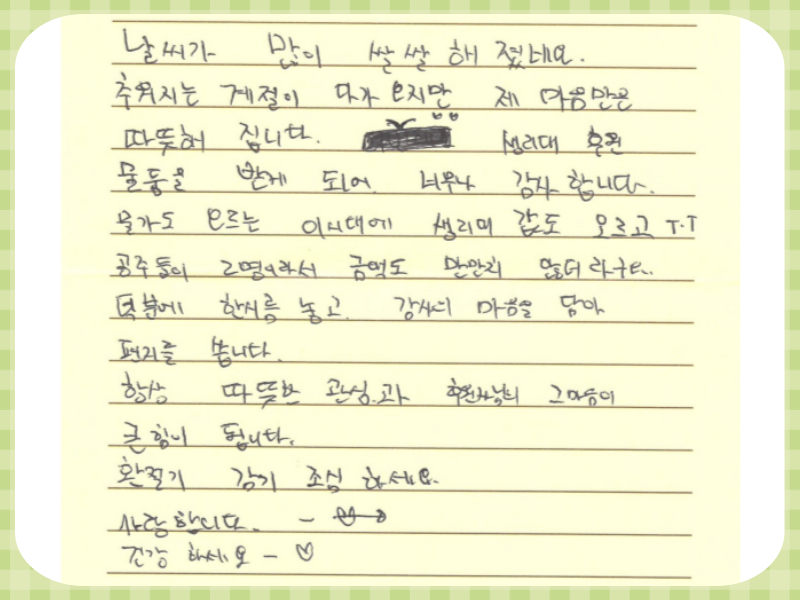 날씨가 많이 쌀쌀 해 졌네요.
추워지는 계절이 다가 오지만 제 마음만은
따뜻해 집니다. 생리대 후원
물품을 받게 되어 너무나 감사 합니다.
물가도 오르는 이시대에 생리대 값도 오르고 T.T
공주들이 2명이라서 금액도 만만치 않더라구요..
덕분에 한시름 놓고. 감사의 마음을 담아
편지를 씁니다.
항상 따뜻한 관심.과 후원자님의 그마음이
큰힘이 됩니다.
환절기 감기 조심 하세요.
사랑합니다. ー
건강 하세요 ー ♡